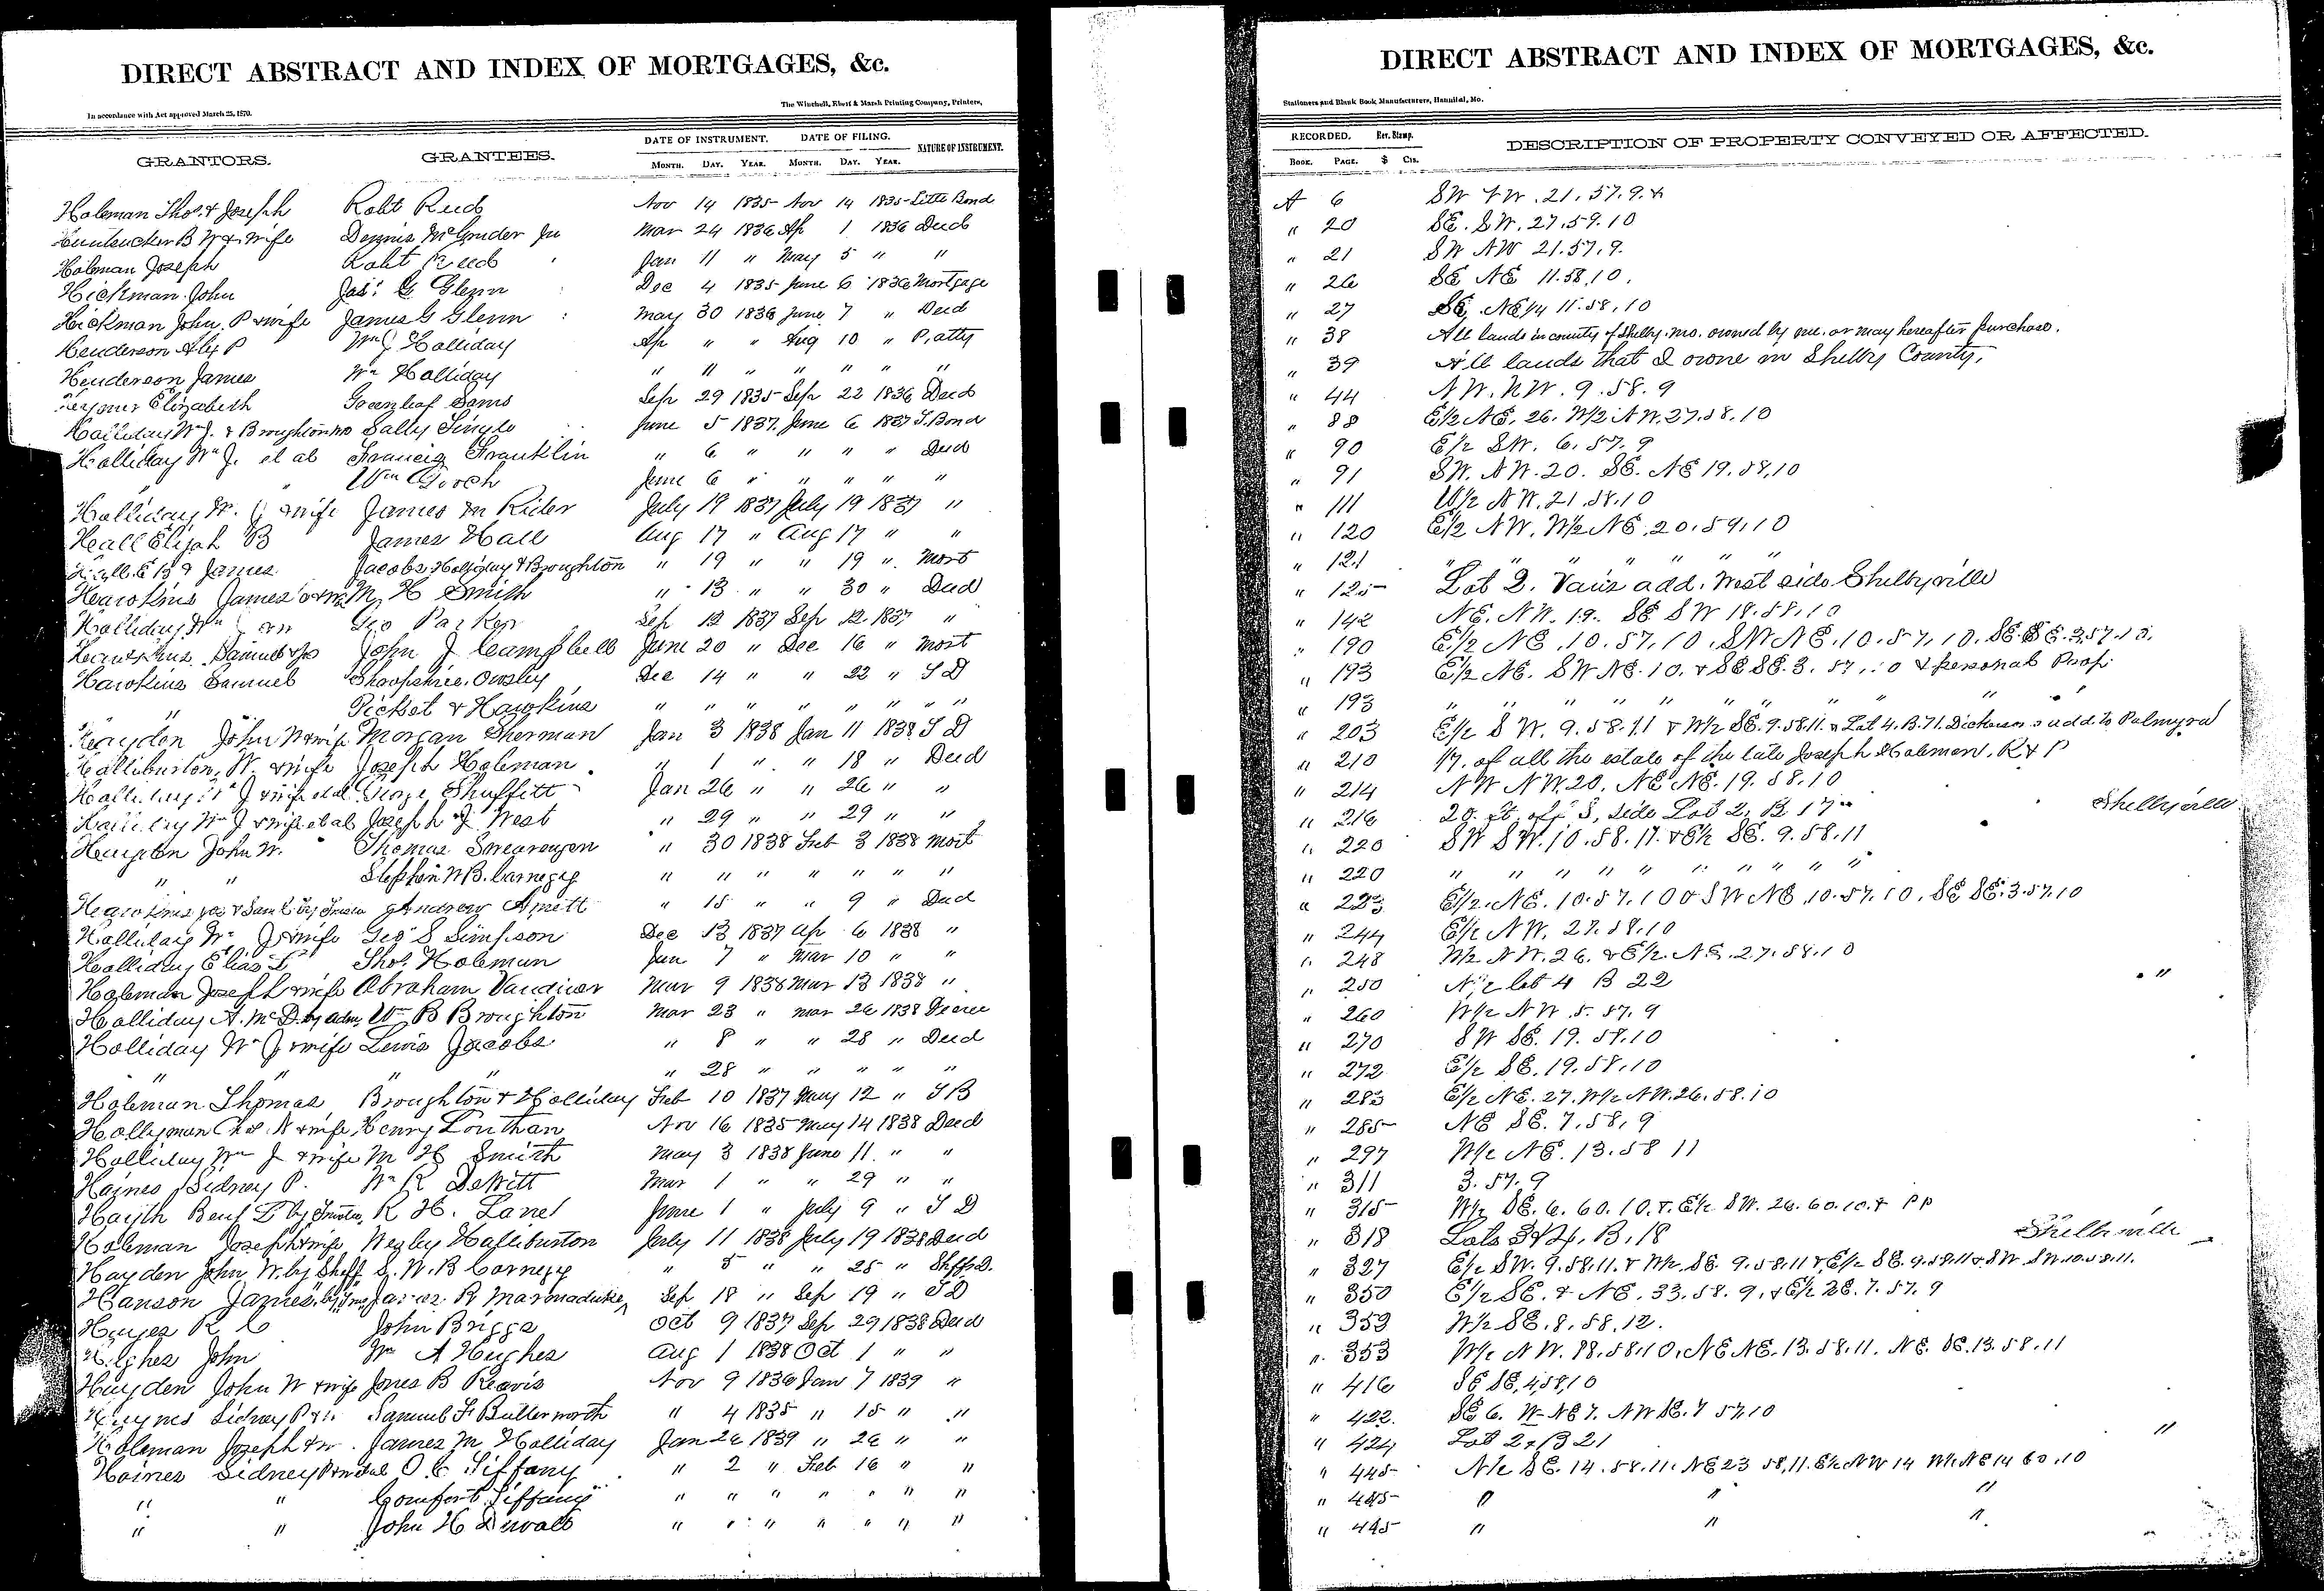 DIRECT ABSTRACT AND INDEX OF MORTGAGES, &c.
In accordance with Act approved March 25, 1870.
The Winchell, Ebert & Marsh Printing Company, Printers,
GRANTORS. GRANTEES. DATE OF INSTRUMENT. DATE OF FILING. NATURE OF INSTRUMENT.
MONTH. DAY. YEAR. MONTH. DAY. YEAR.
Holeman Thos. & Joseph Robt Reed Nov 14 1835 Nov 14 1835 Little Bond
Huntsucker B W & wife Dennis McGruder Jr Mar 24 1836 Ap 1 1836 Deed
Holeman Joseph Robt Reed Jan 11 " May 5 " "
Hickman John Jas. G Glenn Dec 4 1835 June 6 1836 Mortgage
Hickman John. P & wife James G Glenn May 30 1836 June 7 " Deed
Henderson Alex P Wm J Holliday Ap " " Aug 10 " P. atty
Henderson James Wm Holliday " 11 " " " " "
Elizabeth Greenleaf Sams Sep 29 1835 Sep 22 1836 Deed
Holliday Wm J. & Broughton Sally Single June 5 1837 June 6 1837 T. Bond
Holliday Wm J. et al Francis Franklin " 6 " " " " Deed
" Wm Gooch June 6 " " " " "
Holliday W. J & wife James M Rider July 19 1837 July 19 1837 "
Hall Elijah B James Hall Aug 17 " Aug 17 " "
Hall E B & James Jacobs, Holliday & Broughton " 19 " " 19 " Mort
Hawkins James M. H Smith " 13 " " 30 " Deed
Holliday Wm J Geo Parker Sep 12 1837 Sep 12 1837 "
Hawkins Samuel John J Campbell June 20 " Dec 16 " Mort
Hawkins Samuel Shropshire Owsley Dec 14 " " 22 " T D
" Picket & Hawkins " " " " " " " "
Hayden John W & wife Morgan Sherman Jan 3 1838 Jan 11 1838 T D
Halliburton, W. & wife Joseph Holeman " 1 " " 18 " Deed
Holliday Wm J & wife et al George Shuffitt Jan 26 " " 26 " "
Holliday Wm J & wife et al Joseph J West " 29 " " 29 " "
Hayden John W. Thomas Swearengen " 30 1838 Feb 3 1838 Mort
" " Stephen W B. Carnegy " " " " " " "
Hawkins Jas & Saml by Trustee Andrew " 15 " " 9 " Deed
Holliday Wm J & wife Geo S Simpson Dec 13 1837 Ap 6 1838 "
Holliday Elias L Thos. Holeman Jan 7 " Mar 10 " "
Holeman Joseph & wife Abraham Vandiver Mar 9 1838 Mar 13 1838 "
Holliday A. McD by adm Wm B Broughton Mar 23 " Mar 26 1838 Decree
Holliday Wm J & wife Lewis Jacobs " 8 " " 28 " Deed
" " " " 28 " " " " "
Holeman Thomas Broughton & Holliday Feb 10 1837 May 12 " T B
Hollyman Chas. N & wife Henry Louthan Nov 16 1835 May 14 1838 Deed
Holliday Wm J & wife M H Smith May 3 1838 June 11 " "
Haines Sidney P. Wm R DeWitt Mar 1 " " 29 " "
Benf L by Trustee R H. Lane June 1 " July 9 " T D
Holeman Joseph & wife Wesley Halliburton July 11 1838 July 19 1838 Deed
Hayden John W. by Shff S. W. B Carnegy " 5 " " 25 " Shffs D.
Hanson James by Trus James R Marmaduke Sep 18 " Sep 19 " T D
Hayes R C John Briggs Oct 9 1837 Sep 29 1838 Deed
Hughes John Wm A Hughes Aug 1 1838 Oct 1 " "
Hayden John W & wife Jones B Reavis Nov 9 1836 Jan 7 1839 "
Haynes Sidney P Samuel F Butterworth " 4 1835 " 15 " "
Holeman Joseph & w James M Holliday Jan 26 1839 " 26 " "
Haines Sidney P et al O. C. Tiffany " 2 " Feb 16 " "
" " Comfort Tiffany " " " " " " "
" " John H Dewalt " " " " " " "
DIRECT ABSTRACT AND INDEX OF MORTGAGES, &c.
Stationers and Blank Book Manufacturers, Hannibal, Mo.
RECORDED. Rev. Stamp. DESCRIPTION OF PROPERTY CONVEYED OR AFFECTED.
BOOK. PAGE. $ Cts.
A 6 SW NW. 21. 57. 9. &
" 20 SE. SW. 27. 59. 10
" 21 SW NW 21. 57. 9.
" 26 SE NE 11. 58. 10.
" 27 SE, NE 1/4 11. 58, 10
" 38 All lands in county of Shelby. Mo. owned by me. or may hereafter purchase.
" 39 All lands that I owne in Shelby County.
" 44 NW. NW. 9. 58. 9
" 88 E1/2 NE. 26. W/2 NW. 27. 58. 10
" 90 E1/2 SW. 6. 57. 9
" 91 SW. NW. 20. SE. NE 19. 58. 10
" 111 W/2 NW. 21. 58. 10
" 120 E1/2 NW. W1/2 NE. 20. 59. 10
" 121 " " " " " " "
" 125 Lot 2. Vans add. West side Shelbyville
" 142 NE. NW. 19. SE SW 18. 58. 10
" 190 E1/2 NE. 10. 57. 10. SW NE. 10. 57. 10. SE SE. 3. 57. 10.
" 193 E1/2 NE. SW NE. 10. & SE SE. 3. 57. 10 & personal Prop.
" 193 " " " " " " " "
" 203 E1/2 SW. 9. 58. 11 & W1/2 SE. 9. 58. 11. & Lot 4. B. 71. Dickersons add. to Palmyra
" 210 1/7. of all the estate of the late Joseph Holeman. R & P
" 214 NW NW. 20. NE NE. 19. 58. 10
" 216 20 ft. off S, side Lot 2, B 17 Shelbyville
" 220 SW SW. 10. 58. 11. & E1/2 SE. 9. 58. 11
" 220 " " " " " " " " "
" 223 E1/2. NE. 10. 57. 10 & SW NE. 10. 57. 10. SE SE. 3. 57. 10
" 244 E1/2 NW. 27. 58. 10
" 248 W1/2 NW. 26. & E1/2. NE. 27. 58. 10
" 250 N1/2 lot 4 B 22 "
" 260 W1/2 NW. 5. 57. 9
" 270 SW SE. 19. 58. 10
" 272 E1/2 SE. 19. 58. 10
" 283 E1/2 NE. 27. W1/2 NW. 26. 58. 10
" 285 NE SE. 7. 58. 9
" 297 W1/2 NE. 13. 58 11
" 311 3. 57. 9
" 315 W1/2 SE. 6. 60. 10. & E1/2 SW. 26. 60. 10. & PP
" 318 Lots 3 & 4. B. 18 Shelbyville
" 327 E1/2 SW. 9. 58. 11. & W1/2. SE. 9. 58. 11 & E1/2 SE. 9. 58. 11 & SW SW. 10. 58. 11.
" 350 E1/2 SE. & NE. 33. 58. 9. & E1/2 SE. 7. 57. 9
" 353 W1/2 SE. 8. 58. 12.
" 353 W1/2 NW. 18. 58. 10. NE NE. 13. 58. 11. NE. SE. 13. 58. 11
" 416 SE SE. 4, 58, 10
" 422 SE 6. W NE 7. NW SE. 7 57. 10
" 424 Lot 2 B 21 "
" 445 N1/2 SE. 14. 58. 11. NE 23 58, 11. E1/2 NW 14 W1/2 NE 14 60. 10
" 445 " " "
" 445 " " "